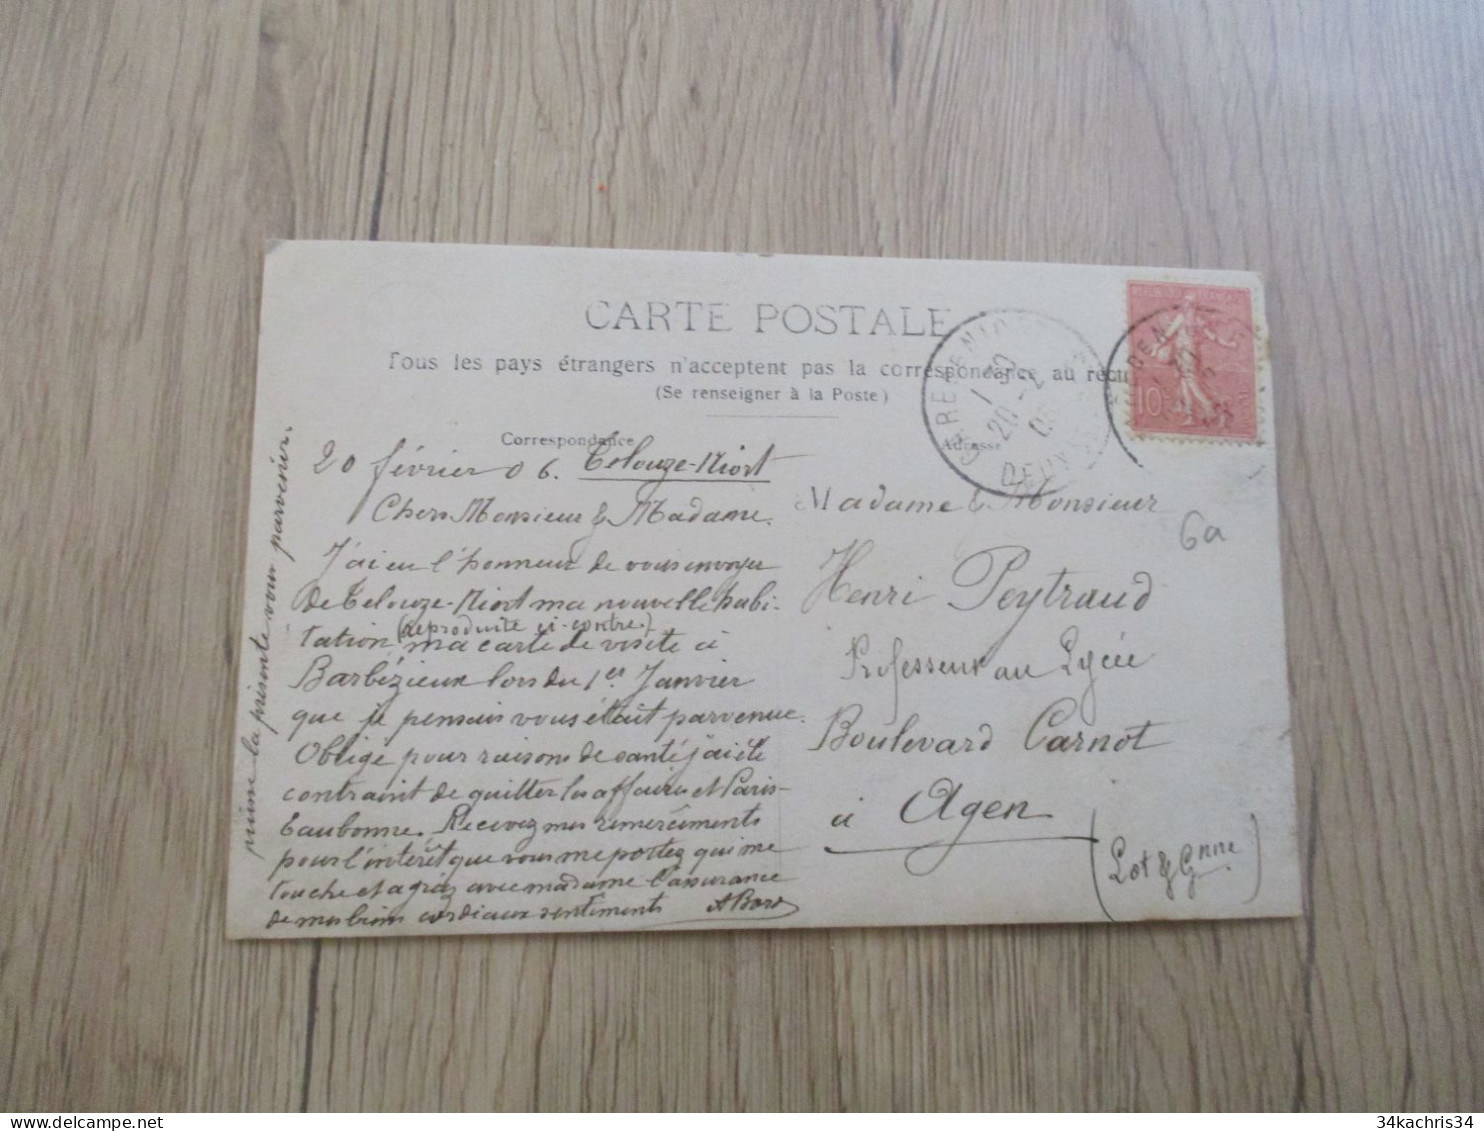 CARTE POSTALE
Tous les pays étrangers n'acceptent pas la correspondance au recto
(Se renseigner à la Poste)
Correspondance
Adresse
20 février 06. Telouze-Niort
Chers Monsieur & Madame.
J'ai eu l'honneur de vous envoyer
de Telouze-Niort ma nouvelle habi-
(reproduite ci-contre)
tation, ma carte de visite à
Barbézieux lors du 1er Janvier
que je pensais vous était parvenue.
Obligé pour raisons de santé j'ai été
contraint de quitter les affaires et Paris-
Eaubonne. Recevez mes remerciments
pour l'interêt que vous me portez qui me
touche et agréez avec madame l'assurance
de mes bien cordiaux sentiments
la présente vous parvenir.
Madame & Monsieur
Henri Peytraud
Professeur au Lycée
Boulevard Carnot
à Agen
(Lot & Gnne)
6a
10
20-2
06
34kachris34